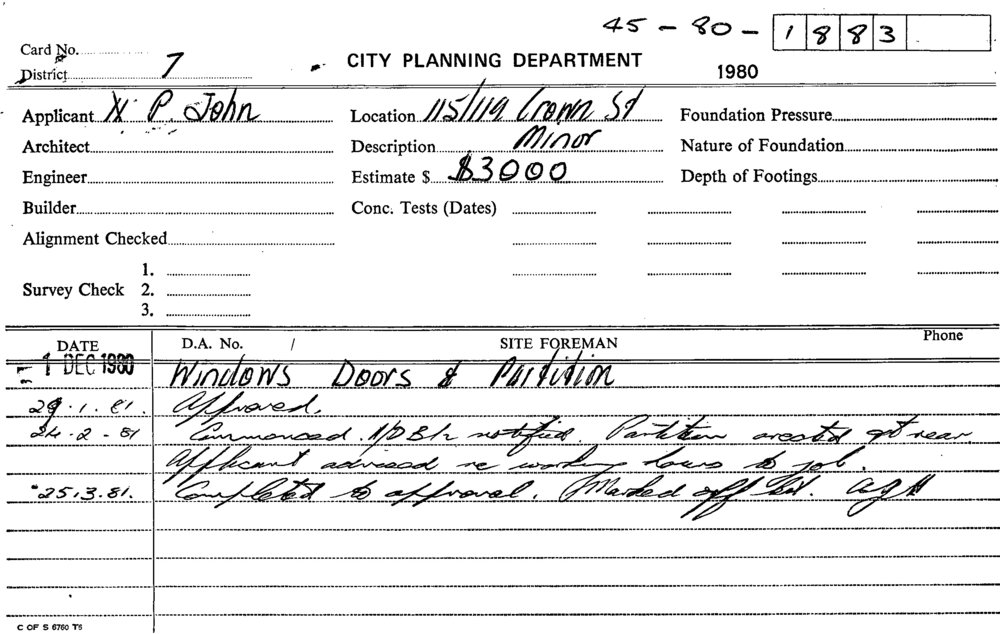 45 - 80 - 1883
Card No.
District 7
CITY PLANNING DEPARTMENT
1980
Applicant P. John
Location 115/119 Crown St
Foundation Pressure
Architect
Description Minor
Nature of Foundation
Engineer
Estimate $ $3000
Depth of Footings
Builder
Conc. Tests (Dates)
Alignment Checked
1.
Survey Check 2.
3.
DATE D.A. No. / SITE FOREMAN Phone
- 1 DEC 1980 Windows Doors & Partition
29.1.81. Approved.
24.2.81 Commenced. notified. Partition erected at rear.
Applicant advised re working hours to job.
25.3.81. Completed to approval. Marked off list.
C OF S 6760 T6